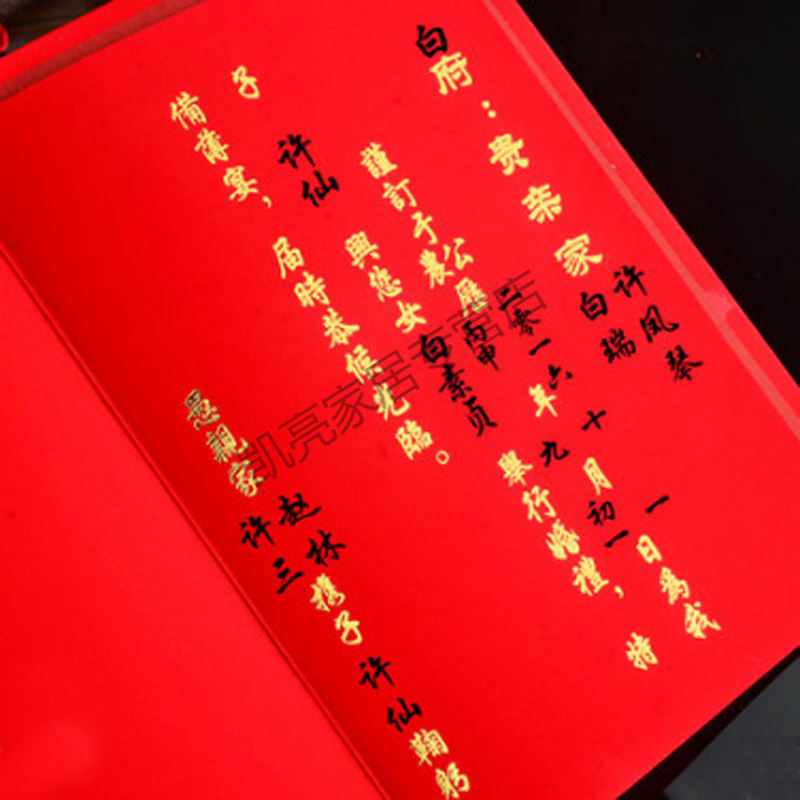 白府：贵亲家许凤琴
白瑞
謹訂于公歷二零一六年十月一日為我
農丙申九初一
子许仙興您女白素贞舉行婚禮，特
備薄宴，届時恭候光臨。
愚親家赵林携子许仙鞠躬
许三
凯亮家居专营店